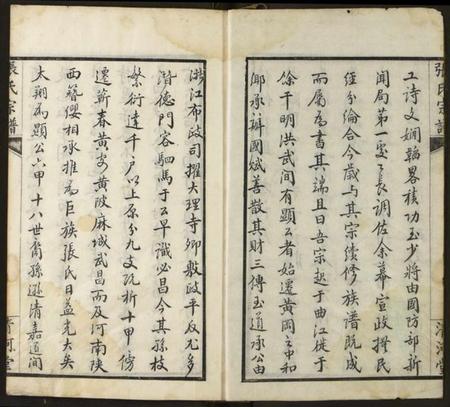 張氏宗譜
清河堂
工诗文娴韜畧積功至少將由國防部新
闻局第一處處長調佐余幕宣政撫民
經分綸合今歲与其宗續修族譜既成
而屬為書其端且曰吾宗起于曲江徙于
餘干明洪武間有顯公者始遷黄岡之中和
鄉承辦國賦善散其財三傳至道承公由
浙江布政司擢大理寺卿敷政平反尤多
潛德門容駟馬于公早識必昌今其孫枝
繁衍達千戶以上原分九支瓦析十甲傍
遷蕲春黄安黄陂麻城武昌而及河南陕
西簪纓相承推為巨族張氏日益光大矣
太翔為顯公六甲十八世裔孫遜清嘉道間
張氏宗譜
清河堂